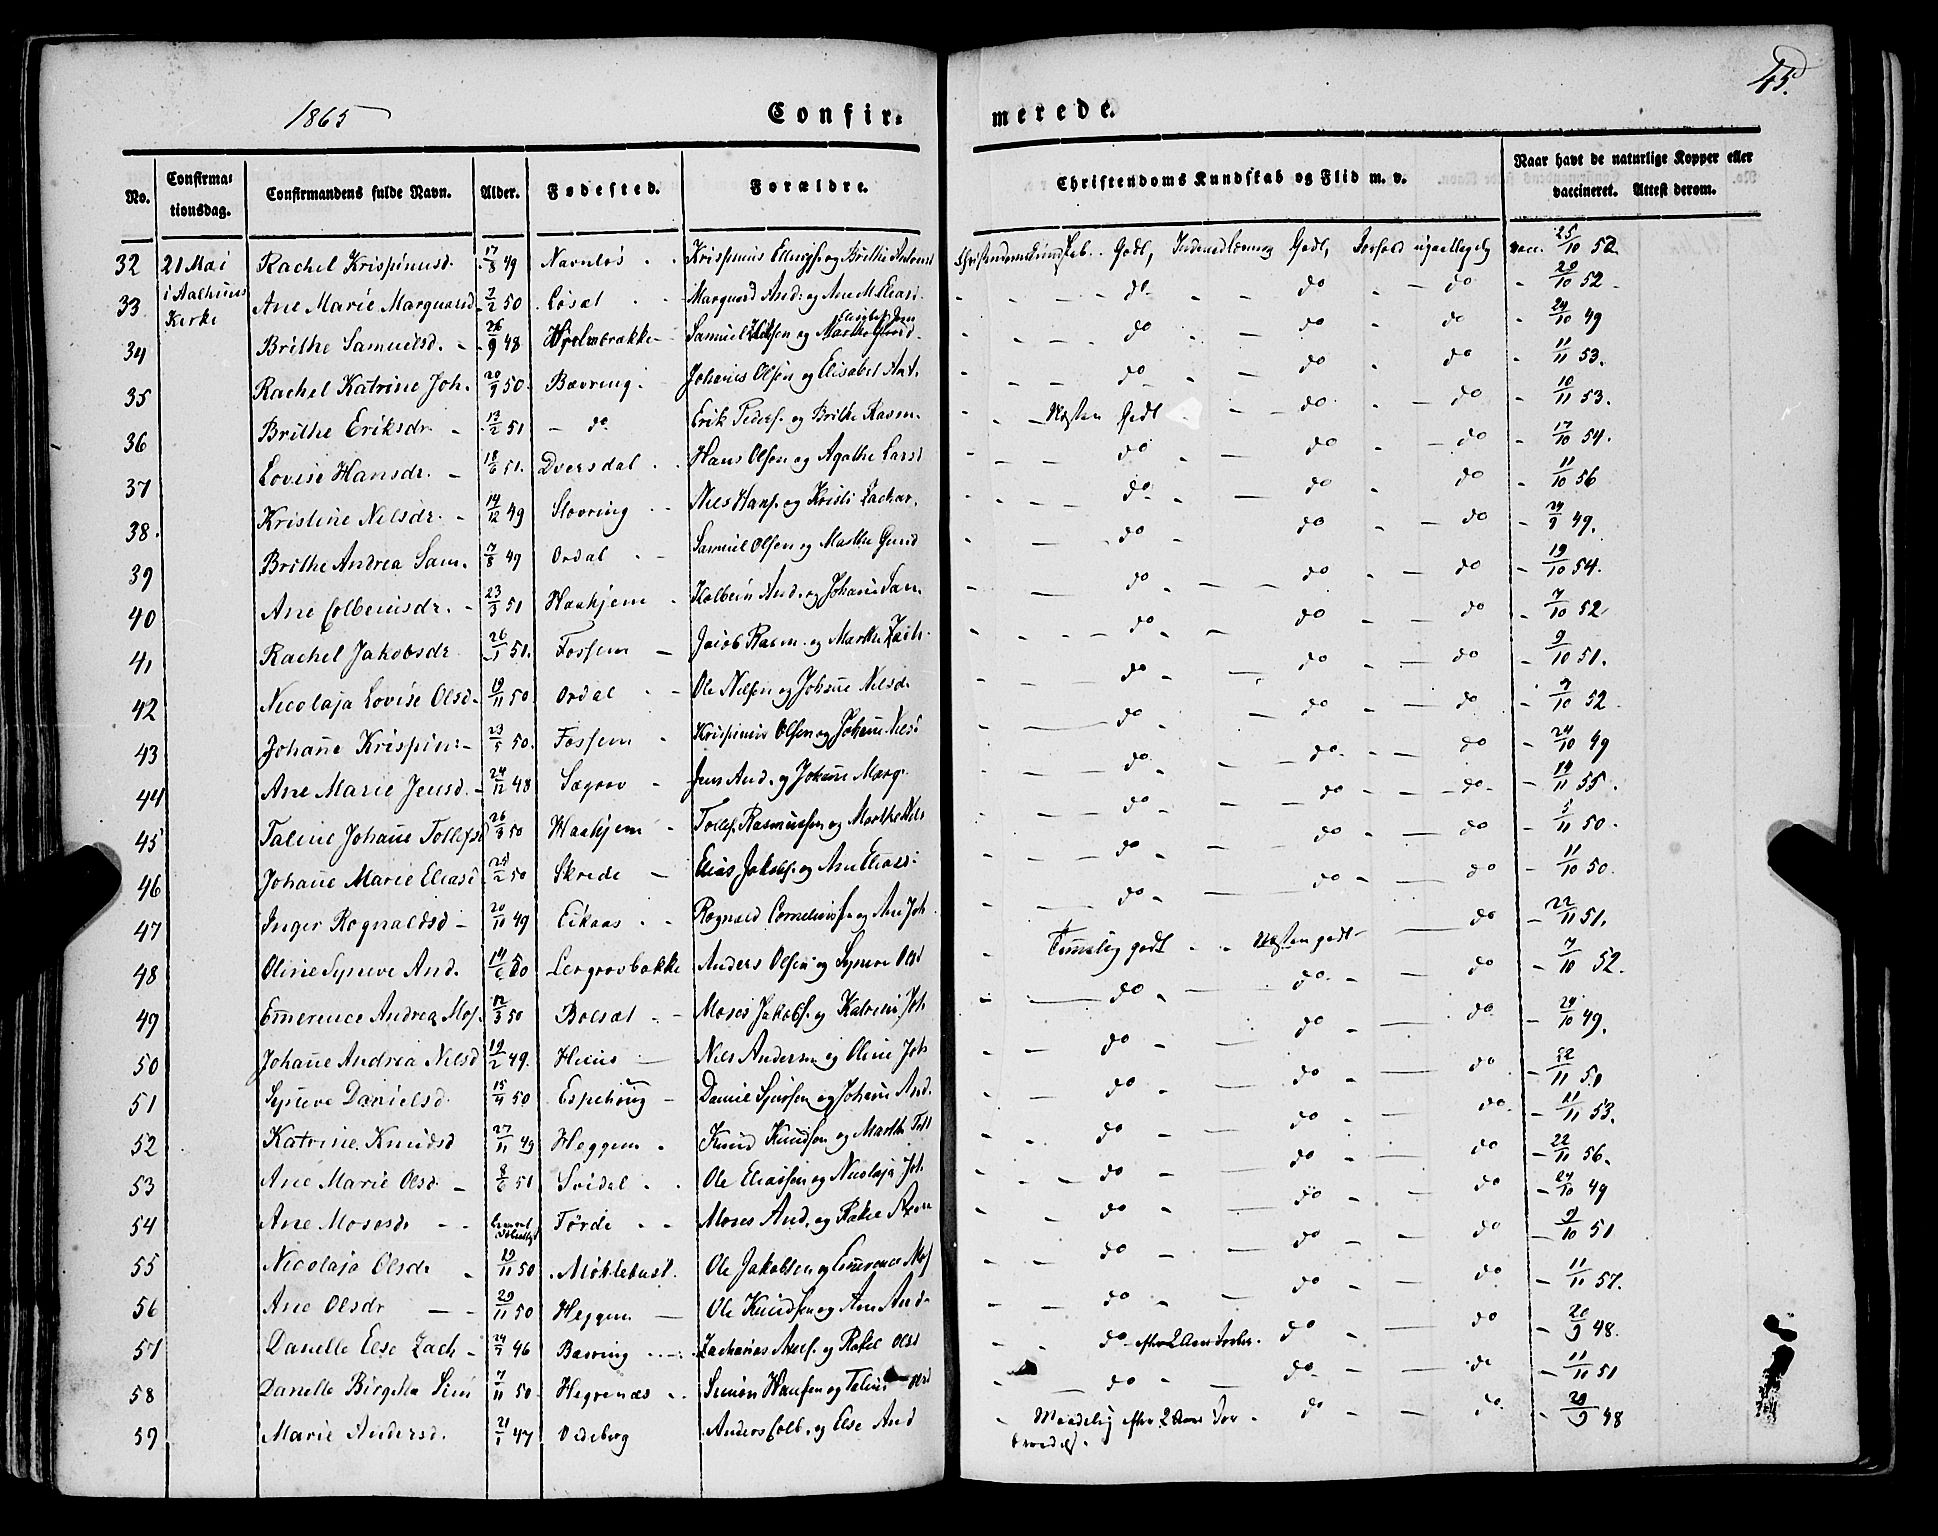 45.
1865
Confir- merede.
No. Confirmationsdag. Confirmandens fulde Navn. Alder. Fødested. Forældre. Christendoms Kundskab og Flid m. v. Naar havt de naturlige Kopper eller vaccineret. Attest derom.
32 21 Mai Rachel Krispinusd. 17/8 49 Navnløs Krispinus Ellings. og Brithe Antonsd Christendomskundskab. Godt, Indenadlæsning Godt, Forhold upaaklagelig vacc. 25/10 52
33 i Aalhuus Kirke Ane Marie Marquardsd 7/2 50 Løsæt Marquard And. og Ane M. Eliasd. do do do 20/10 52
34 Brithe Samuelsd. 26/9 48 Hjelmbrække Samuel Olsen og do do do 24/10 49
35 Rachel Katrine Joh. 20/9 50. Bævring Johanes Olsen og Elisabet Ant. do do do 11/11 53.
36 Brithe Eriksdr. 13/2 51 do Erik Peders. og Brithe Rasm. Næsten Godt do do 10/11 53.
37 Lovise Hansdr. 18/6 51. Dvergsdal Hans Olsen og Agathe Larsd do do do 17/10 54.
38. Kristine Nilsdr. 14/12 49 Sløvring Niels Hans. og Kristi Zachar. do do do 11/10 56
39 Brithe Andrea Sam. 7/8 49 Ordal Samuel Olsen og Marthe Gund do do do 24/9 49.
40 Ane Colbeinsdr. 23/3 51 Haakjem Kolbein And. og Johane Sam. do do do 19/10 54.
41 Rachel Jakobsdr 26/1 50. Fossem Jacob Rasm. og Marthe Zach. do do do 7/10 52
42 Nicolaja Lovise Olsd. 19/11 50 Ordal Ole Nilsen og Johane Nilsd. do do do 9/10 51.
43 Johane Krispin. 23/5 50. Fossem Krispinus Olsen og Johane Nilsd do do do 9/10 52
44 Ane Marie Jensd. 24/12 48 Sægrov Jens And. og Johane Marg. do do do 24/10 49
45 Taline Johane Tollefsd 26/3 50 Haakjem Tollef Rasmussen og Marthe Nils do do do 14/11 55.
46 Johane Marie Eliasd 25/2 50 Skrede Elias Jakobs. og Ane Eliasd. do do do 5/11 50.
47 Inger Rognaldsd 20/10 49 Eikaas Rognald Corneliuss. og Ane Joh do do do 11/10 50.
48 Oline Synneve And. 14/6 50 Lergrovbakke Anders Olsen og Synneve Olsd Temmelig godt Næsten godt do 22/11 51.
49 Emerence Andrea Mos. 12/3 50 Bolsæt Moses Jakobs. og Katrine Joh do do do 7/10 52.
50 Johane Andrea Nilsd 19/2 49. Huus Nils Andersen og Oline Joh do do do 24/10 49.
51 Synneve Danielsd. 15/4 50 Espehoug Daniel Sjursen og Johane And. do do do 22/11 50
52 Katrine Knudsd 27/11 49 Heggem Knud Knudsen og Marthe Toll do do do 11/11 53.
53 Ane Marie Olsd 8/6 51 Svidal Ole Eliassen og Nicolaja Joh. do do do 22/11 56.
54 Ane Mosesdr Førde Moses And. og Rakel do do do 24/10 49
55 Nicolaja Olsdr 19/11 50 Møklebust. Ole Jakobsen og Emerence Mos do do do 9/10 51
56 Ane Olsdr 29/11 50 Heggem Ole Knudsen og Ane And. do do do 11/11 57.
57 Danelle Else Zach 24/7 46 Bævring Zacharias And. og Rakel Olsd do efter 2 Aars Forber. do do 20/9 48.
58 Danelle Birgitha Sim 7/11 50. Hegrenæs Simon Hansen og Taline Olsd do do do 11/11 51
59 Marie Andersd. 21/1 47 Vedeberg Anders Colb. og Else And Maadelig efter 2 Aars Forberedelse. do do 20/9 48